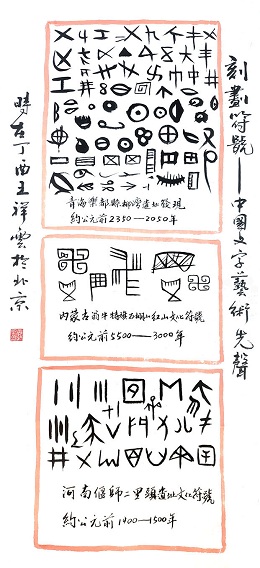 刻劃符號——中國文字藝術先聲
青海樂都縣柳灣遺址發現
約公元前2350—2050年
內蒙古翁牛特旗石棚山紅山文化符號
約公元前5500—3000年
河南偃師二里頭遺址文化符號
約公元前1900—1500年
時在丁酉王祥雲於北京